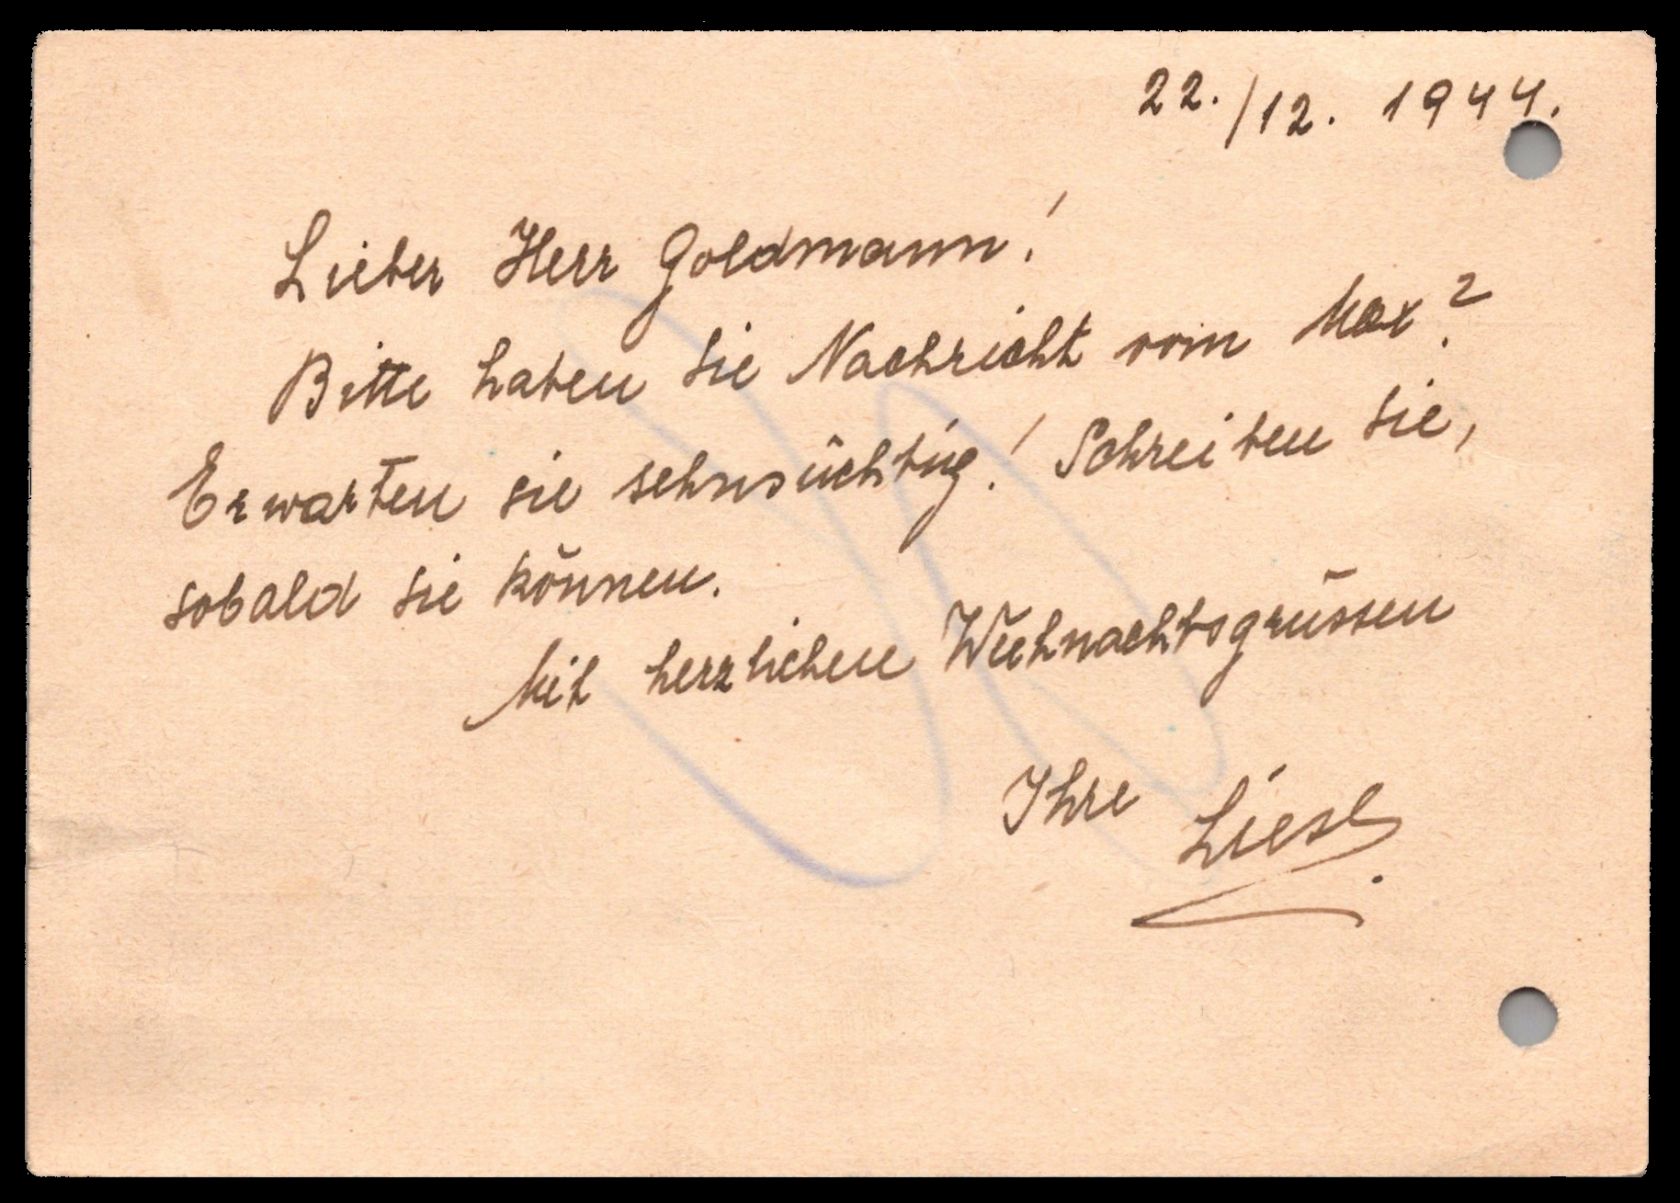 22./12. 1944.
Lieber Herr Goldmann!
Bitte haben Sie Nachricht vom Max?
Erwarten sie sehnsüchtig! Schreiben Sie,
sobald Sie können.
Mit herzlichen Weihnachtsgrüssen
Ihre Liesl.